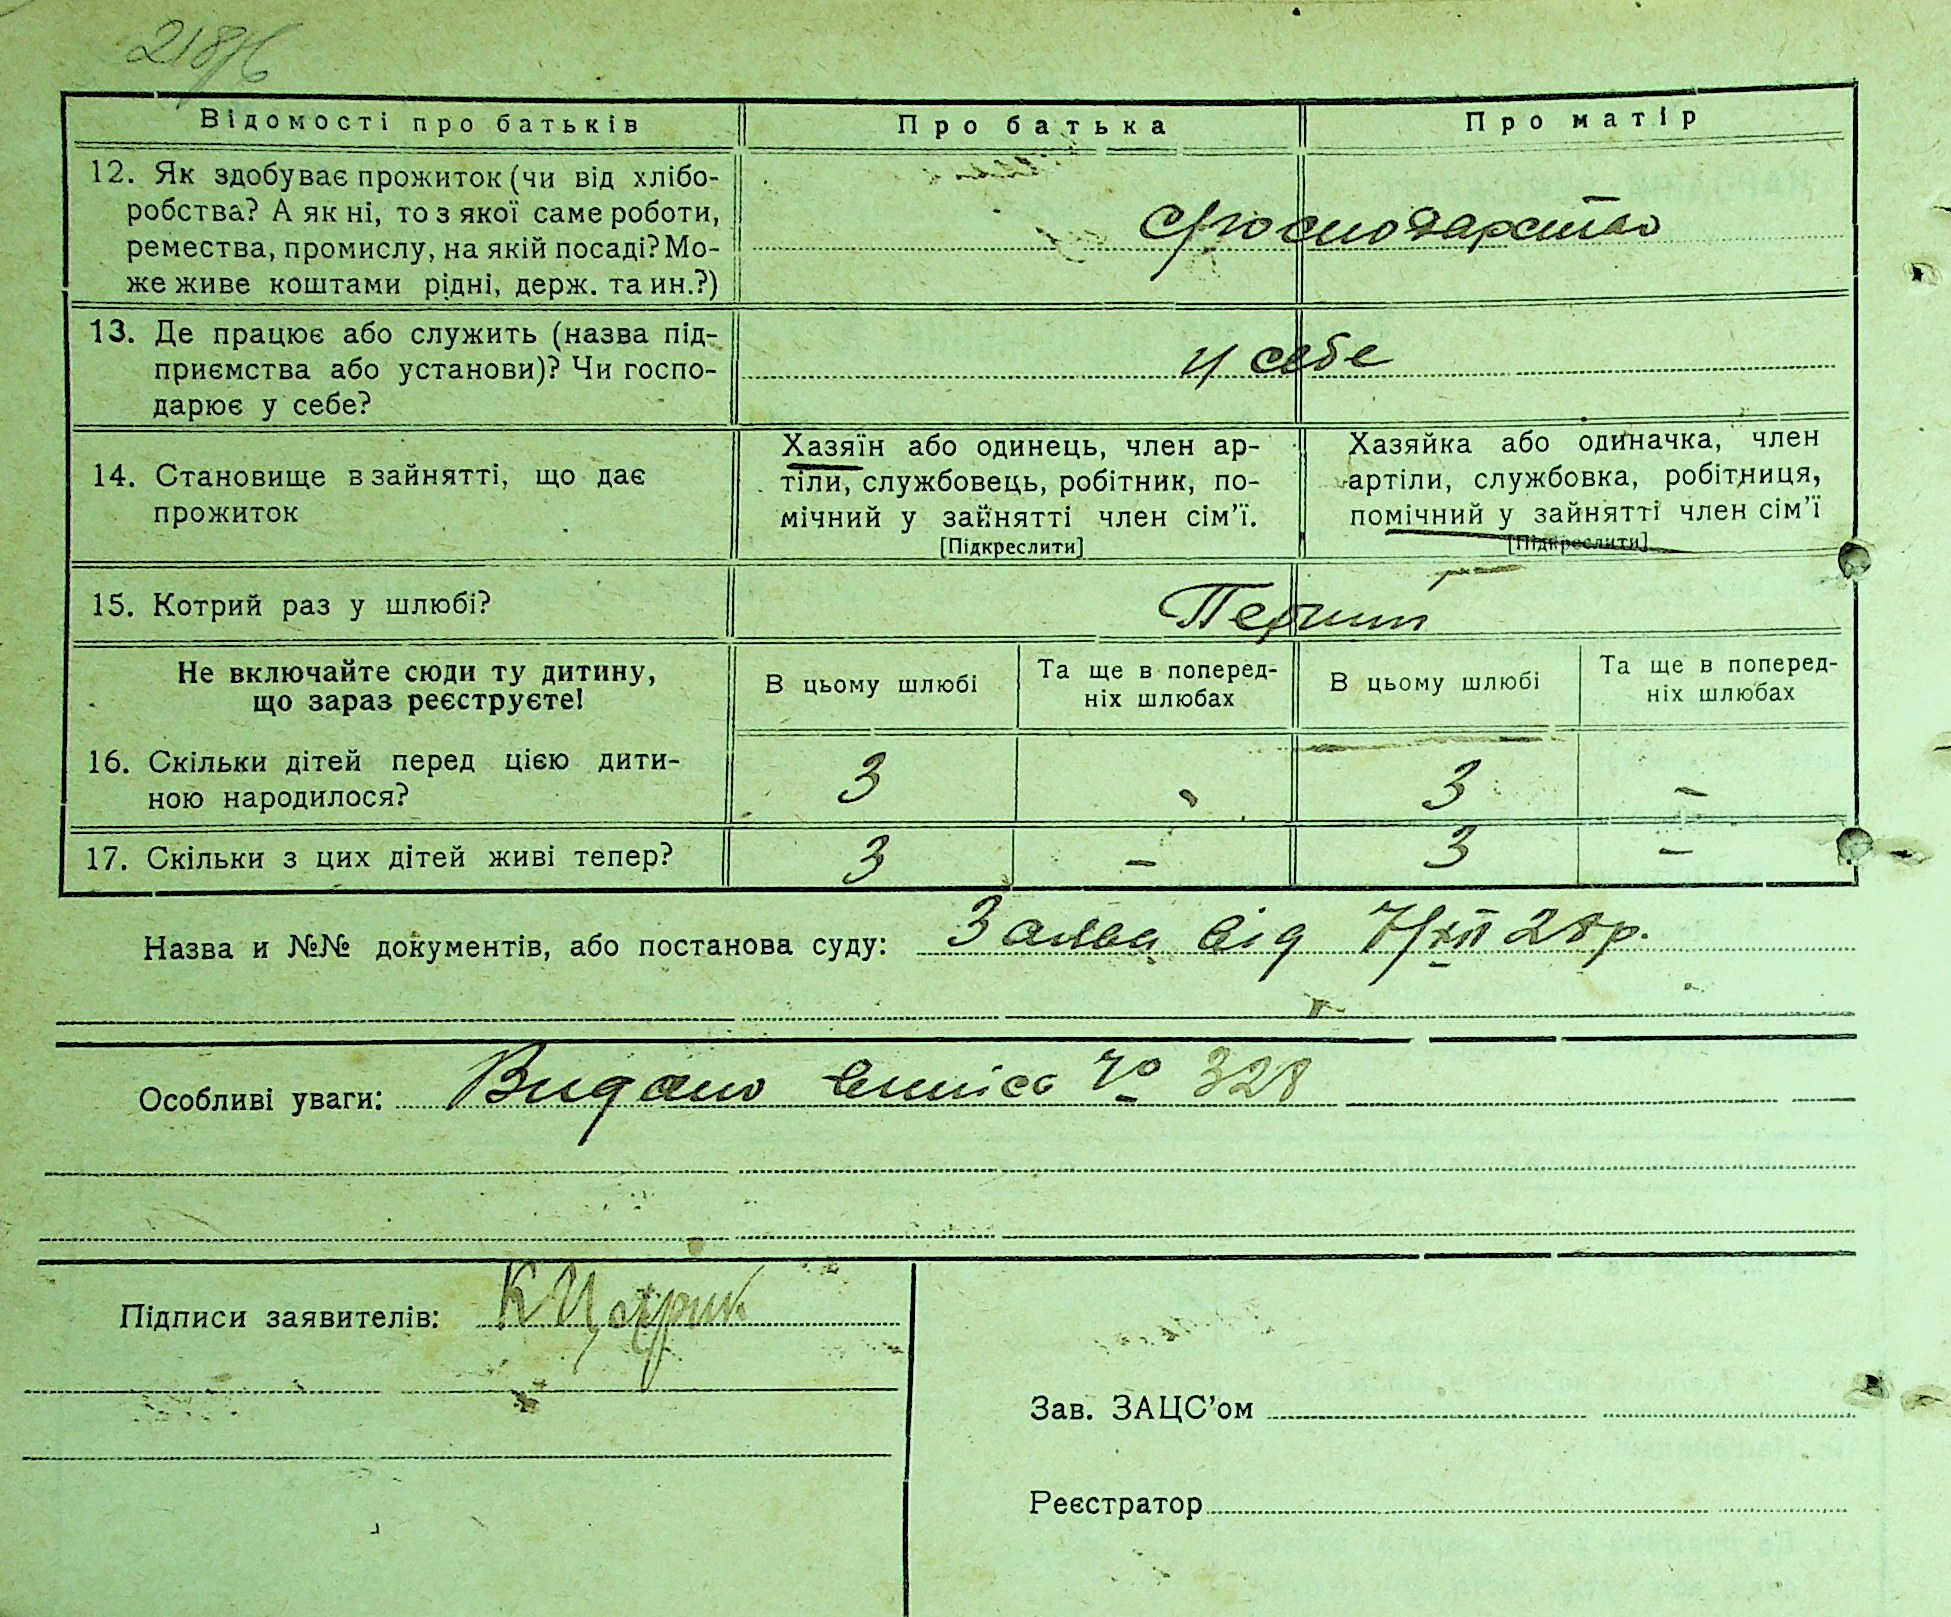 Відомості про батьків Про батька Про матір
12. Як здобуває прожиток (чи від хлібо-
робства? А як ні, то з якої саме роботи,
ремества, промислу, на якій посаді? Мо-
же живе коштами рідні, держ. та ин.?)
13. Де працює або служить (назва під-
приємства або установи)? Чи госпо-
дарює у себе?
у себе
14. Становище в зайнятті, що дає
прожиток
Хазяїн або одинець, член ар-
тіли, службовець, робітник, по-
мічний у зайнятті член сім’ї.
[Підкреслити]
Хазяйка або одиначка, член
артіли, службовка, робітниця,
помічний у зайнятті член сім’ї
[Підкреслити]
15. Котрий раз у шлюбі?
Перший
Не включайте сюди ту дитину,
що зараз реєструєте!
В цьому шлюбі
Та ще в поперед-
ніх шлюбах
В цьому шлюбі
Та ще в поперед-
ніх шлюбах
16. Скільки дітей перед цією дити-
ною народилося?
3 - 3 -
17. Скільки з цих дітей живі тепер? 3 - 3 -
Назва и №№ документів, або постанова суду: Заява від 7/XII 28р.
Особливі уваги: Видано № 328
Підписи заявителів:
Зав. ЗАЦС’ом
Реєстратор